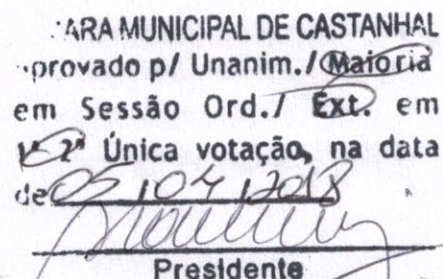 ARA MUNICIPAL DE CASTANHAL
provado p/ Unanim./ Maioria
em Sessão Ord./ Ext. em
1ª 2ª Única votação, na data
de 05 / 04 / 2018
Presidente